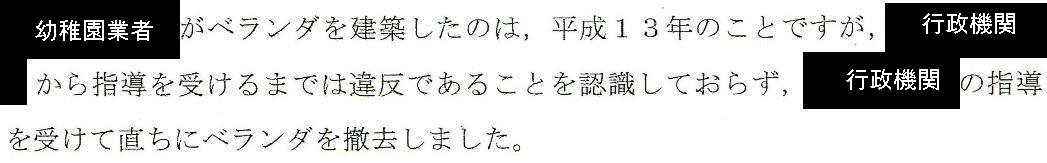 幼稚園業者がベランダを建築したのは，平成１３年のことですが，行政機関
から指導を受けるまでは違反であることを認識しておらず，行政機関の指導
を受けて直ちにベランダを撤去しました。